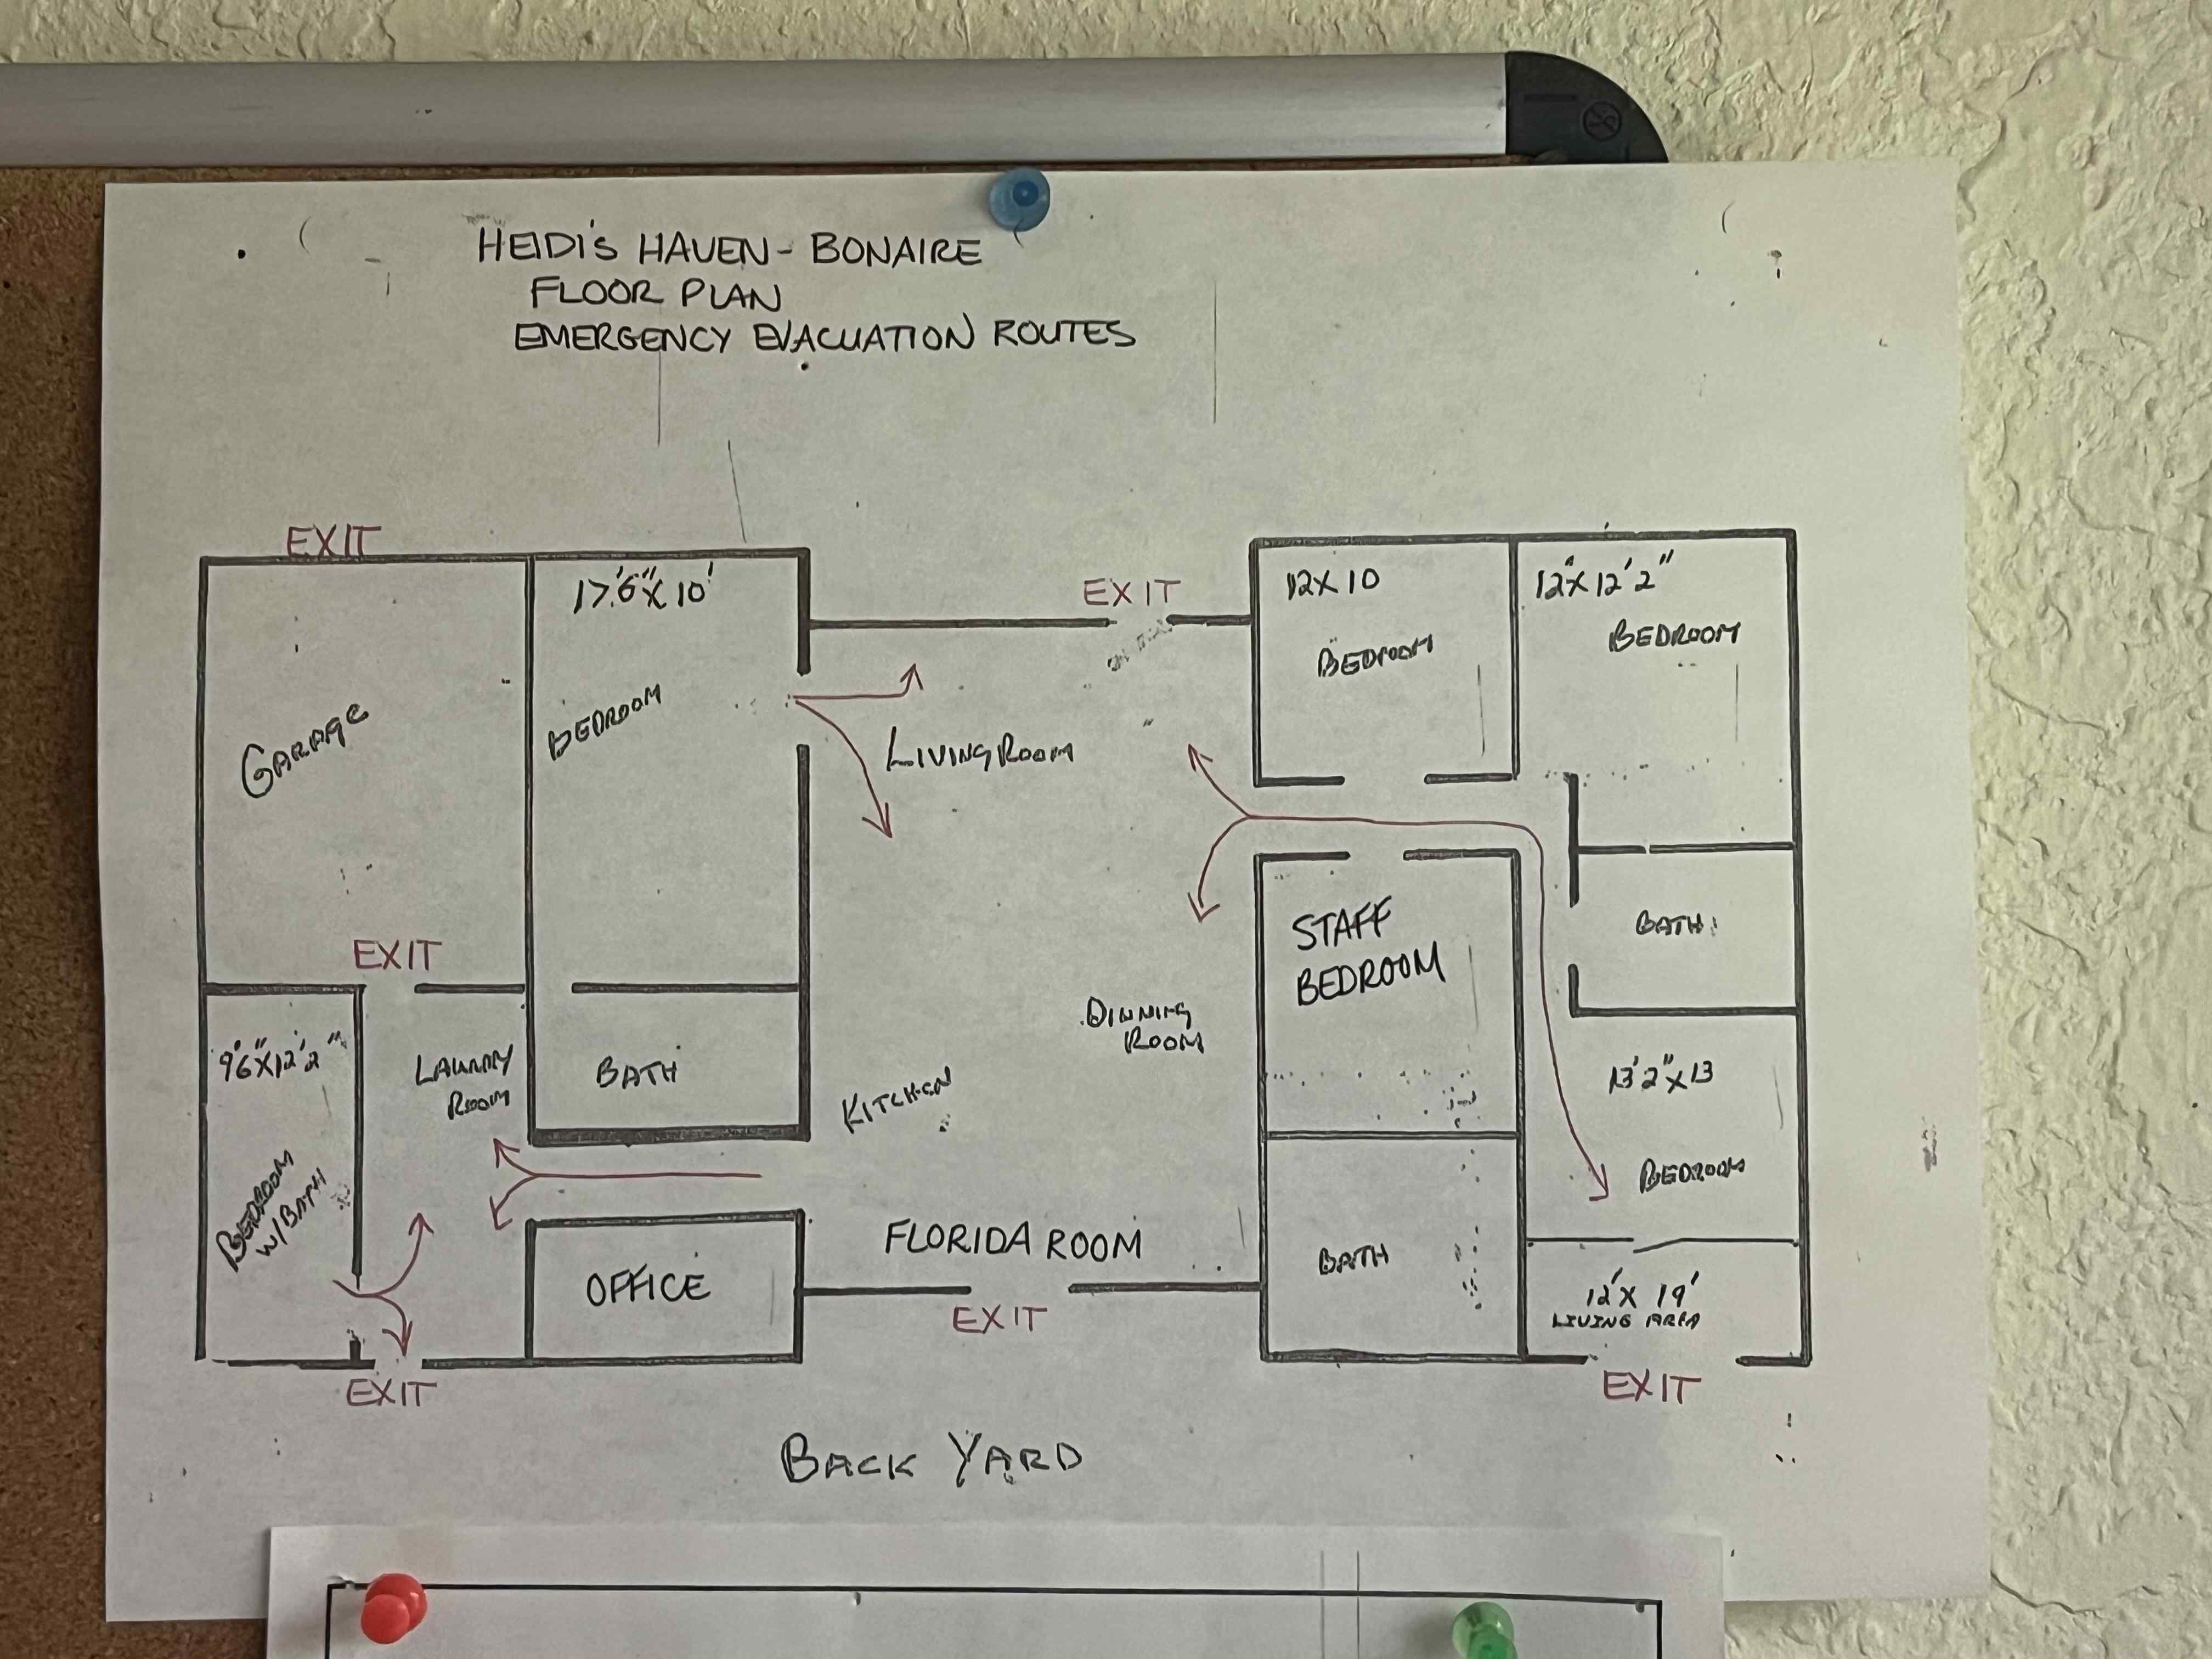 HEIDI'S HAVEN - BONAIRE
FLOOR PLAN
EMERGENCY EVACUATION ROUTES
EXIT
17'6" X 10'
BEDROOM
GARAGE
EXIT
LIVING ROOM
12 X 10
BEDROOM
12" X 12'2"
BEDROOM
EXIT
9'6" X 12'2"
BEDROOM
W/BATH
LAUNDRY
ROOM
BATH
KITCHEN
DINNING
ROOM
STAFF
BEDROOM
BATH
13'2" X 13
BEDROOM
OFFICE
FLORIDA ROOM
EXIT
BATH
12' X 19'
LIVING AREA
EXIT
EXIT
BACK YARD